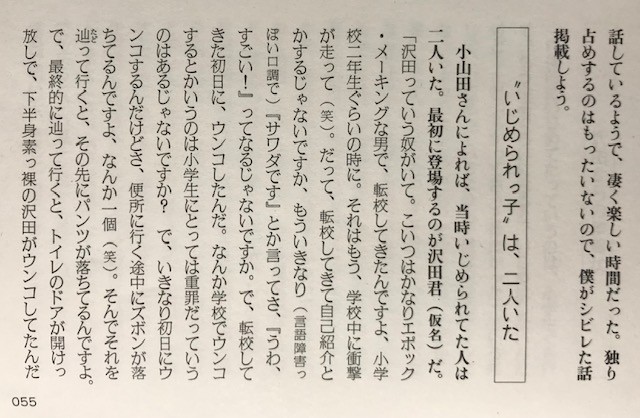 話しているようで、凄く楽しい時間だった。独り
占めするのはもったいないので、僕がシビレた話
掲載しよう。
〝いじめられっ子〟は、二人いた
小山田さんによれば、当時いじめられてた人は
二人いた。最初に登場するのが沢田君（仮名）だ。
「沢田っていう奴がいて。こいつはかなりエポック
・メーキングな男で、転校してきたんですよ、小学
校二年生ぐらいの時に。それはもう、学校中に衝撃
が走って（笑）。だって、転校してきて自己紹介と
かするじゃないですか、もういきなり（言語障害っ
ぽい口調で）『サワダです』とか言ってさ、『うわ、
すごい！』ってなるじゃないですか。で、転校して
きた初日に、ウンコしたんだ。なんか学校でウンコ
するとかいうのは小学生にとっては重罪だっていう
のはあるじゃないですか？　で、いきなり初日にウ
ンコするんだけどさ、便所に行く途中にズボンが落
ちてるんですよ、なんか一個（笑）。そんでそれを
辿って行くと、その先にパンツが落ちてるんですよ。
で、最終的に辿って行くと、トイレのドアが開けっ
放しで、下半身素っ裸の沢田がウンコしてたんだ
055